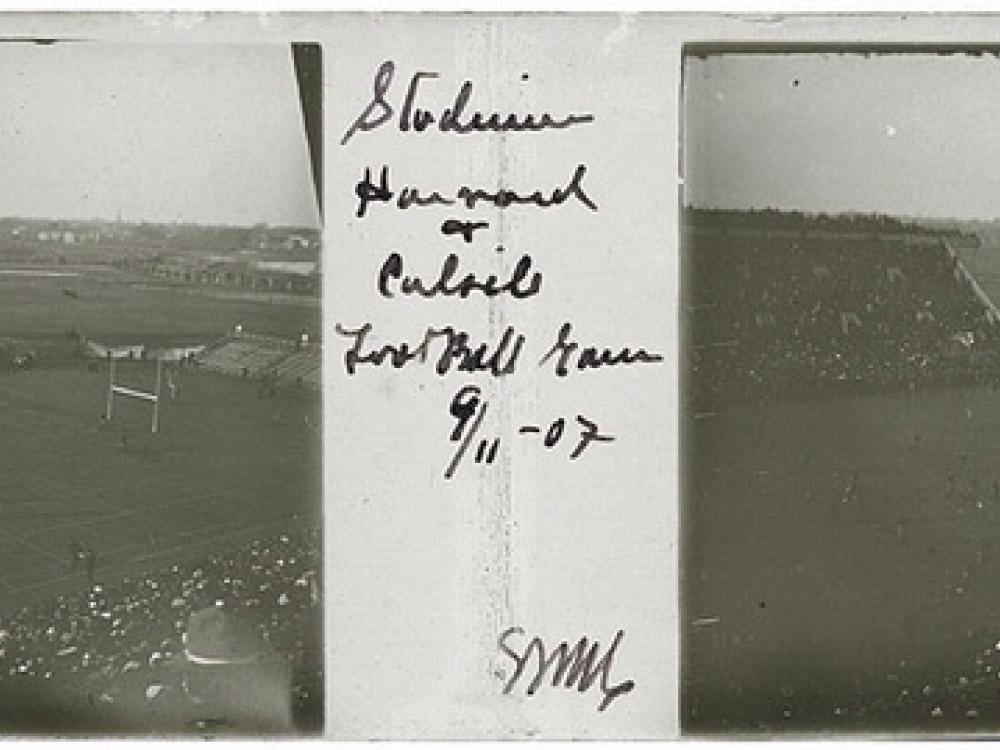 Stadium
Harvard
&
Carlisle
Foot Ball Game
9/11-07